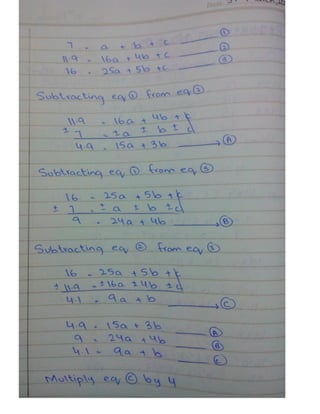 7 = a + b + c ——— ①
11.9 = 16a + 4b + c ——— ②
16 = 25a + 5b + c ——— ③
Subtracting eq ① from eq ②
11.9 = 16a + 4b + c
± 7 = ± a ± b ± c
4.9 = 15a + 3b ——→ Ⓐ
Subtracting eq ① from eq ③
16 = 25a + 5b + c
± 7 = ± a ± b ± c
9 = 24a + 4b ——→ Ⓑ
Subtracting eq ② from eq ③
16 = 25a + 5b + c
± 11.9 = ± 16a ± 4b ± c
4.1 = 9a + b ——→ Ⓒ
4.9 = 15a + 3b ——— Ⓐ
9 = 24a + 4b ——— Ⓑ
4.1 = 9a + b ——— Ⓒ
Multiply eq Ⓒ by 4